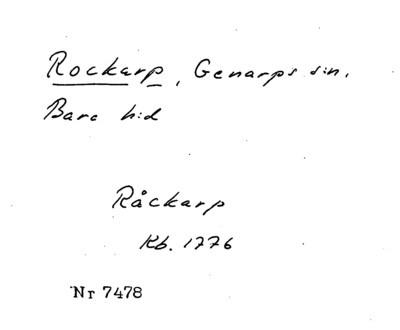 Rockarp, Genarps sn.
Bara hd
Råckarp
Kb. 1776
Nr 7478